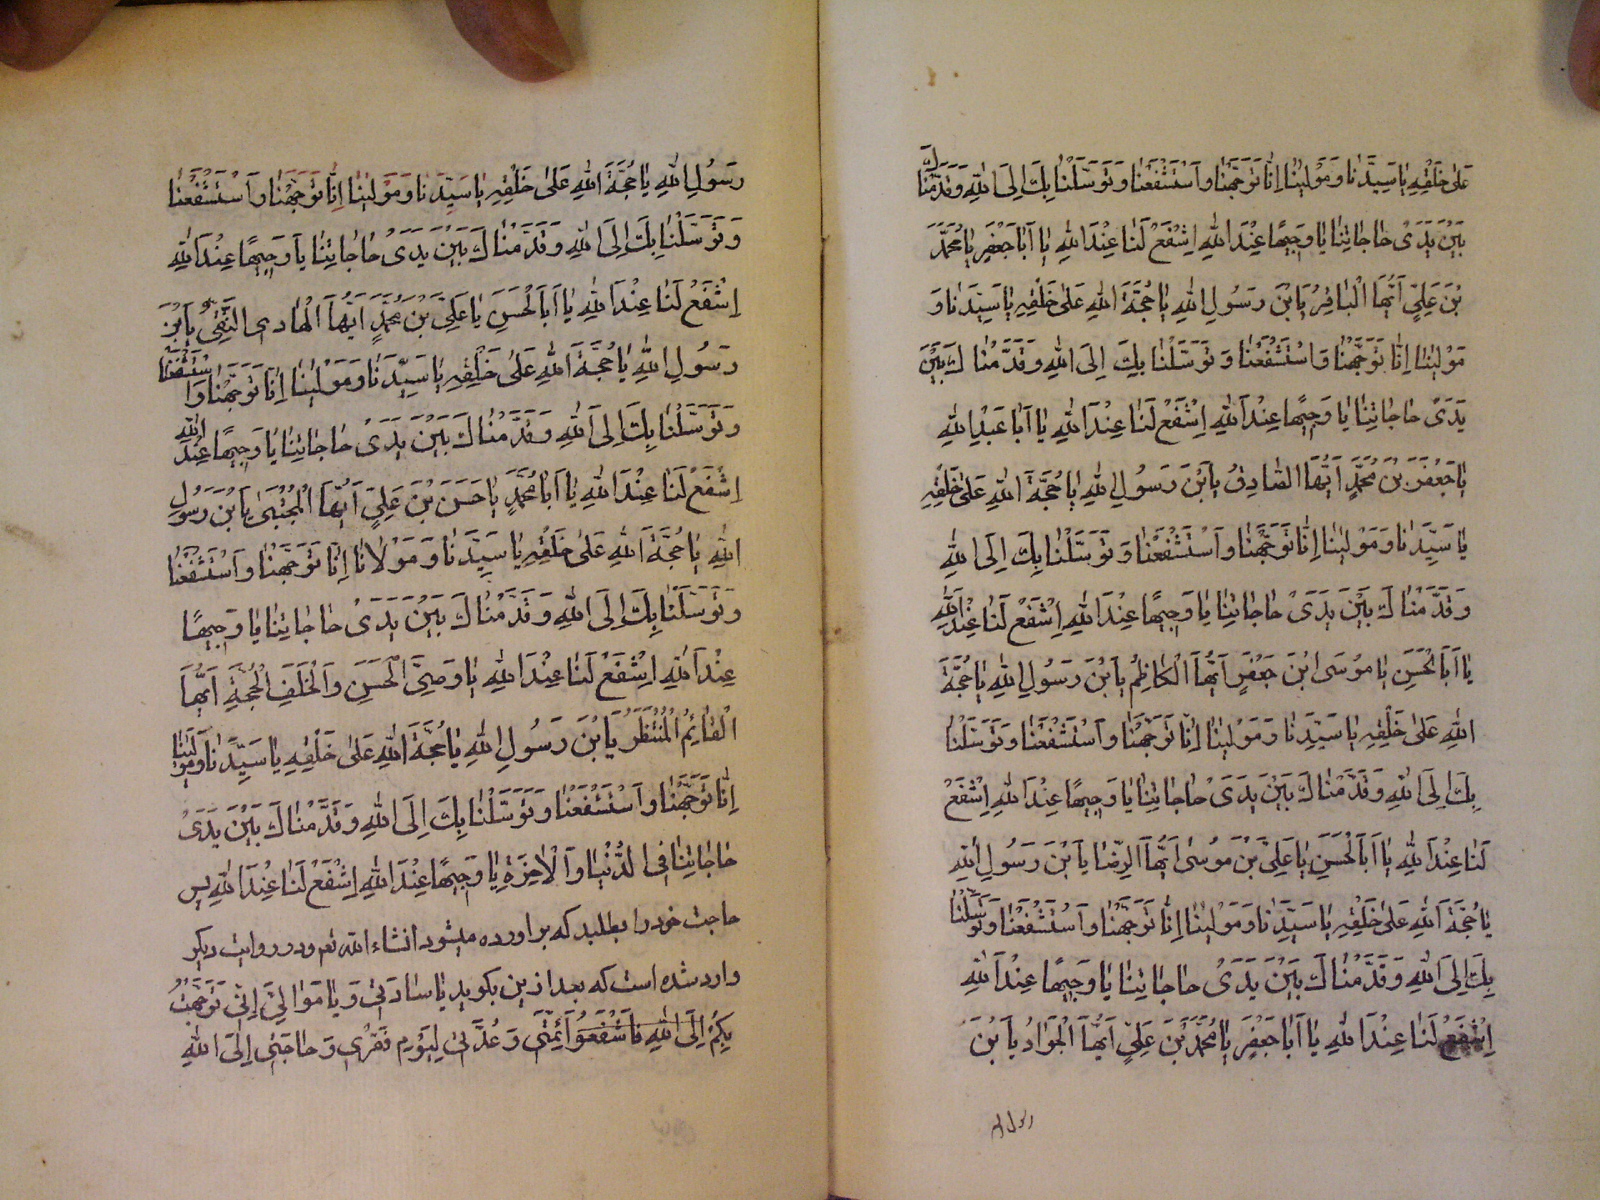 عَلىٰ خَلْقِهِ يٰا سَيِّدَنٰا وَ مَوْلٰينٰا اِنّٰا تَوَجَّهْنٰا وَ اسْتَشْفَعْنٰا وَ تَوَسَّلْنٰا بِكَ اِلَى اللّٰهِ وَ قَدَّمْنٰاكَ
بَيْنَ يَدَىْ حٰاجٰاتِنٰا يٰا وَجِيهًا عِنْدَ اللّٰهِ اِشْفَعْ لَنٰا عِنْدَ اللّٰهِ يٰا اَبٰا جَعْفَرٍ يٰا مُحَمَّدَ
بْنَ عَلِيٍّ اَيُّهَا الْبٰاقِرُ يَا بْنَ رَسُولِ اللّٰهِ يٰا حُجَّةَ اللّٰهِ عَلىٰ خَلْقِهِ يٰا سَيِّدَنٰا وَ
مَوْلٰينٰا اِنّٰا تَوَجَّهْنٰا وَ اسْتَشْفَعْنٰا وَ تَوَسَّلْنٰا بِكَ اِلَى اللّٰهِ وَ قَدَّمْنٰاكَ بَيْنَ
يَدَىْ حٰاجٰاتِنٰا يٰا وَجِيهًا عِنْدَ اللّٰهِ اِشْفَعْ لَنٰا عِنْدَ اللّٰهِ يٰا اَبٰا عَبْدِ اللّٰهِ
يٰا جَعْفَرَ بْنَ مُحَمَّدٍ اَيُّهَا الصّٰادِقُ يَا بْنَ رَسُولِ اللّٰهِ يٰا حُجَّةَ اللّٰهِ عَلىٰ خَلْقِهِ
يٰا سَيِّدَنٰا وَ مَوْلٰينٰا اِنّٰا تَوَجَّهْنٰا وَ اسْتَشْفَعْنٰا وَ تَوَسَّلْنٰا بِكَ اِلَى اللّٰهِ
وَ قَدَّمْنٰاكَ بَيْنَ يَدَىْ حٰاجٰاتِنٰا يٰا وَجِيهًا عِنْدَ اللّٰهِ اِشْفَعْ لَنٰا عِنْدَ اللّٰهِ
يٰا اَبَا الْحَسَنِ يٰا مُوسَى ابْنَ جَعْفَرٍ اَيُّهَا الْكٰاظِمُ يَا بْنَ رَسُولِ اللّٰهِ يٰا حُجَّةَ
اللّٰهِ عَلىٰ خَلْقِهِ يٰا سَيِّدَنٰا وَ مَوْلٰينٰا اِنّٰا تَوَجَّهْنٰا وَ اسْتَشْفَعْنٰا وَ تَوَسَّلْنٰا
بِكَ اِلَى اللّٰهِ وَ قَدَّمْنٰاكَ بَيْنَ يَدَىْ حٰاجٰاتِنٰا يٰا وَجِيهًا عِنْدَ اللّٰهِ اِشْفَعْ
لَنٰا عِنْدَ اللّٰهِ يٰا اَبَا الْحَسَنِ يٰا عَلِىَّ بْنَ مُوسىٰ اَيُّهَا الرِّضٰا يَا بْنَ رَسُولِ اللّٰهِ
يٰا حُجَّةَ اللّٰهِ عَلىٰ خَلْقِهِ يٰا سَيِّدَنٰا وَ مَوْلٰينٰا اِنّٰا تَوَجَّهْنٰا وَ اسْتَشْفَعْنٰا وَ تَوَسَّلْنٰا
بِكَ اِلَى اللّٰهِ وَ قَدَّمْنٰاكَ بَيْنَ يَدَىْ حٰاجٰاتِنٰا يٰا وَجِيهًا عِنْدَ اللّٰهِ
اِشْفَعْ لَنٰا عِنْدَ اللّٰهِ يٰا اَبٰا جَعْفَرٍ يٰا مُحَمَّدَ بْنَ عَلِيٍّ اَيُّهَا الْجَوٰادُ يَا بْنَ
رسول الله
رَسُولِ اللّٰهِ يٰا حُجَّةَ اللّٰهِ عَلىٰ خَلْقِهِ يٰا سَيِّدَنٰا وَ مَوْلٰينٰا اِنّٰا تَوَجَّهْنٰا وَ اسْتَشْفَعْنٰا
وَ تَوَسَّلْنٰا بِكَ اِلَى اللّٰهِ وَ قَدَّمْنٰاكَ بَيْنَ يَدَىْ حٰاجٰاتِنٰا يٰا وَجِيهًا عِنْدَ اللّٰهِ
اِشْفَعْ لَنٰا عِنْدَ اللّٰهِ يٰا اَبَا الْحَسَنِ يٰا عَلِىَّ بْنَ مُحَمَّدٍ اَيُّهَا الْهٰادِى النَّقِىُّ يَا بْنَ
رَسُولِ اللّٰهِ يٰا حُجَّةَ اللّٰهِ عَلىٰ خَلْقِهِ يٰا سَيِّدَنٰا وَ مَوْلٰينٰا اِنّٰا تَوَجَّهْنٰا وَ اسْتَشْفَعْنٰا
وَ تَوَسَّلْنٰا بِكَ اِلَى اللّٰهِ وَ قَدَّمْنٰاكَ بَيْنَ يَدَىْ حٰاجٰاتِنٰا يٰا وَجِيهًا عِنْدَ اللّٰهِ
اِشْفَعْ لَنٰا عِنْدَ اللّٰهِ يٰا اَبٰا مُحَمَّدٍ يٰا حَسَنَ بْنَ عَلِيٍّ اَيُّهَا الْمُجْتَبىٰ يَا بْنَ رَسُولِ
اللّٰهِ يٰا حُجَّةَ اللّٰهِ عَلىٰ خَلْقِهِ يٰا سَيِّدَنٰا وَ مَوْلٰانٰا اِنّٰا تَوَجَّهْنٰا وَ اسْتَشْفَعْنٰا
وَ تَوَسَّلْنٰا بِكَ اِلَى اللّٰهِ وَ قَدَّمْنٰاكَ بَيْنَ يَدَىْ حٰاجٰاتِنٰا يٰا وَجِيهًا
عِنْدَ اللّٰهِ اِشْفَعْ لَنٰا عِنْدَ اللّٰهِ يٰا وَصِىَّ الْحَسَنِ وَ الْخَلَفَ الْحُجَّةِ اَيُّهَا
الْقٰائِمُ الْمُنْتَظَرُ يَا بْنَ رَسُولِ اللّٰهِ يٰا حُجَّةَ اللّٰهِ عَلىٰ خَلْقِهِ يٰا سَيِّدَنٰا وَ مَوْلٰينٰا
اِنّٰا تَوَجَّهْنٰا وَ اسْتَشْفَعْنٰا وَ تَوَسَّلْنٰا بِكَ اِلَى اللّٰهِ وَ قَدَّمْنٰاكَ بَيْنَ يَدَىْ
حٰاجٰاتِنٰا فِى الدُّنْيٰا وَ الْاٰخِرَةِ يٰا وَجِيهًا عِنْدَ اللّٰهِ اِشْفَعْ لَنٰا عِنْدَ اللّٰهِ پس
حاجت خود را بطلبد که براورده میشود انشاء الله تعم و در روایت دیکر
وارد شده است که بعد ازین بکوید يٰا سٰادَتِى وَ يٰا مَوٰالِىَّ اِنِّى تَوَجَّهْتُ
بِكُمْ اِلَى اللّٰهِ فَاشْفَعُوا اَئِمَّتِى وَ عُدَّتِى لِيَوْمِ فَقْرِى وَ حٰاجَتِى اِلَى اللّٰهِ